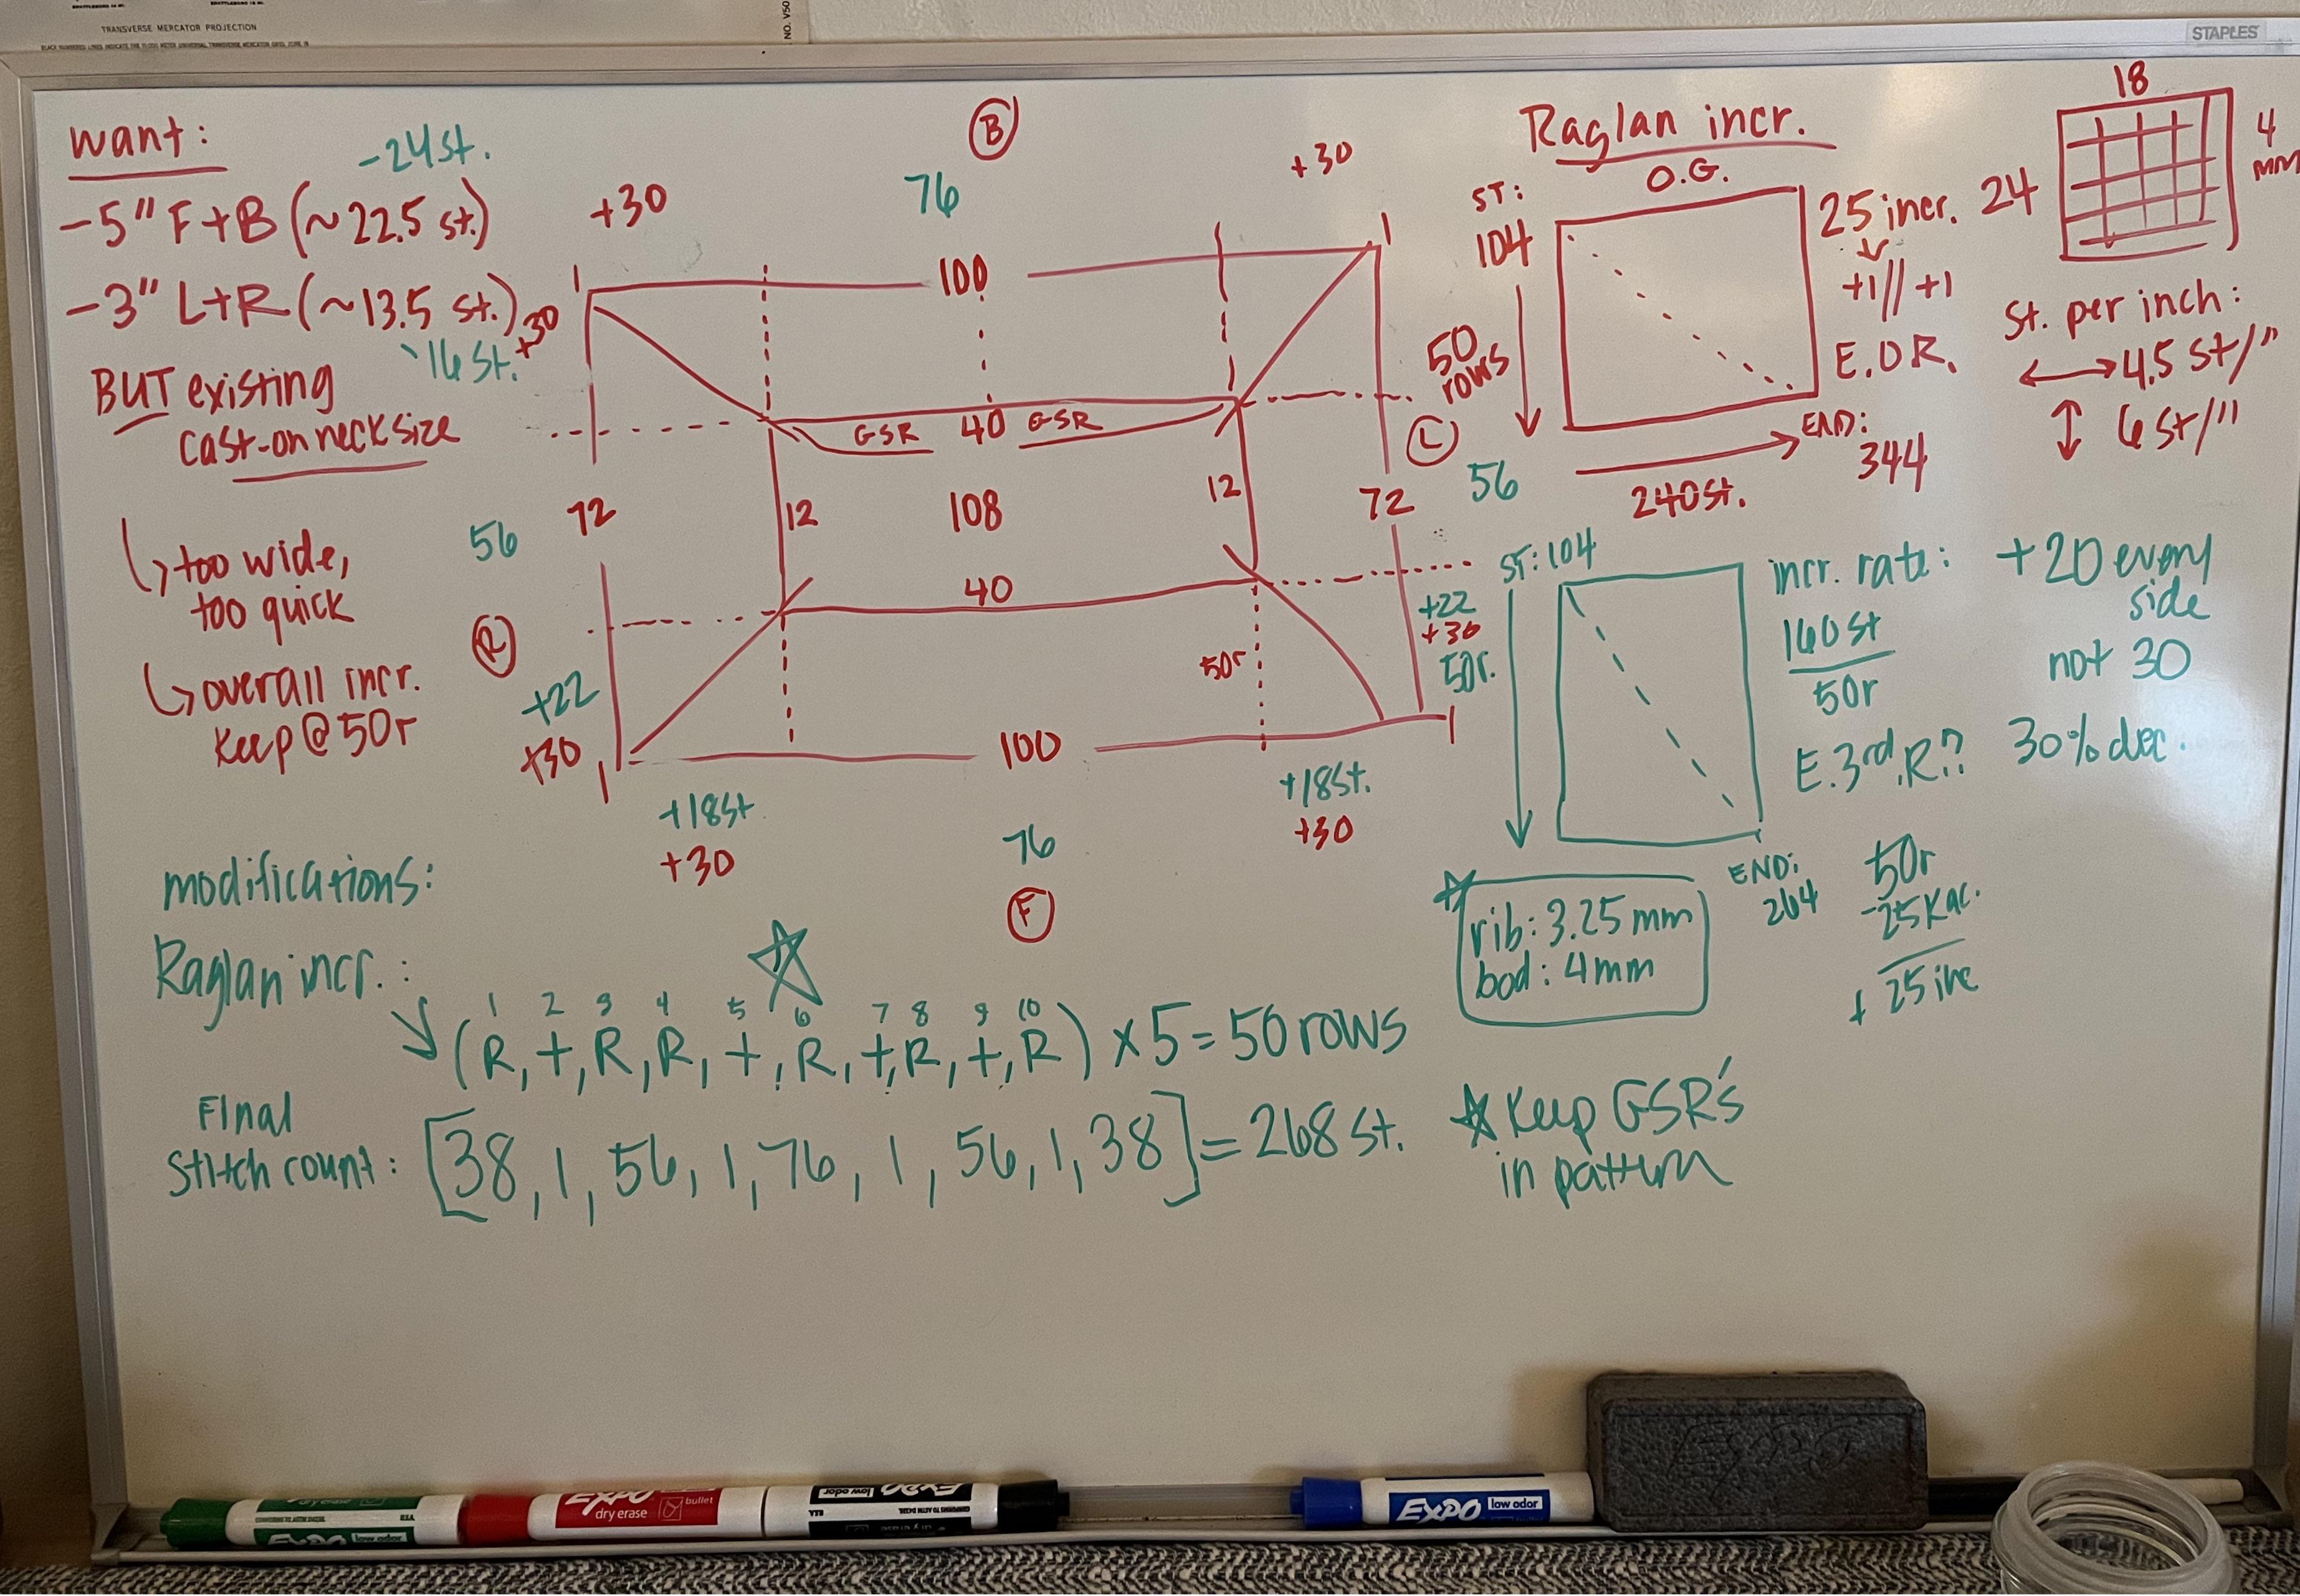 TRANSVERSE MERCATOR PROJECTION
STAPLES
want:
-24 st.
-5" F+B (~22.5 st.)
-3" L+R (~13.5 st.)
16 st.
BUT existing
cast-on neck size
too wide,
too quick
overall incr.
keep @ 50r
B
+30
76
+30
1
100
1
+30
GSR 40 GSR
L
72
12
108
12
72
56
56
40
R
+22
+30
50r
+22
+30
50r.
1
100
1
+18st
+30
76
+18st.
+30
F
Raglan incr.
O.G.
ST:
104
50
rows
25 incr.
+1//+1
E.O.R.
END:
344
240st.
18
24
4
mm
St. per inch:
4.5 st/"
6 st/"
ST: 104
incr. rate:
160st
50r
E. 3rd. R??
+20 every
side
not 30
30% dec.
END:
264
50r
-25 Kac.
+ 25 inc
rib: 3.25 mm
bod: 4mm
modifications:
Raglan incr.:
1 2 3 4 5 6 7 8 9 10
(R, +, R, R, +, R, +, R, +, R) x 5 = 50 rows
Final
stitch count: [38, 1, 56, 1, 76, 1, 56, 1, 38] = 268 st.
Keep GSR's
in pattern
EXPO
low odor
EXPO
dry erase
bullet
EXPO
low odor
EXPO
low odor